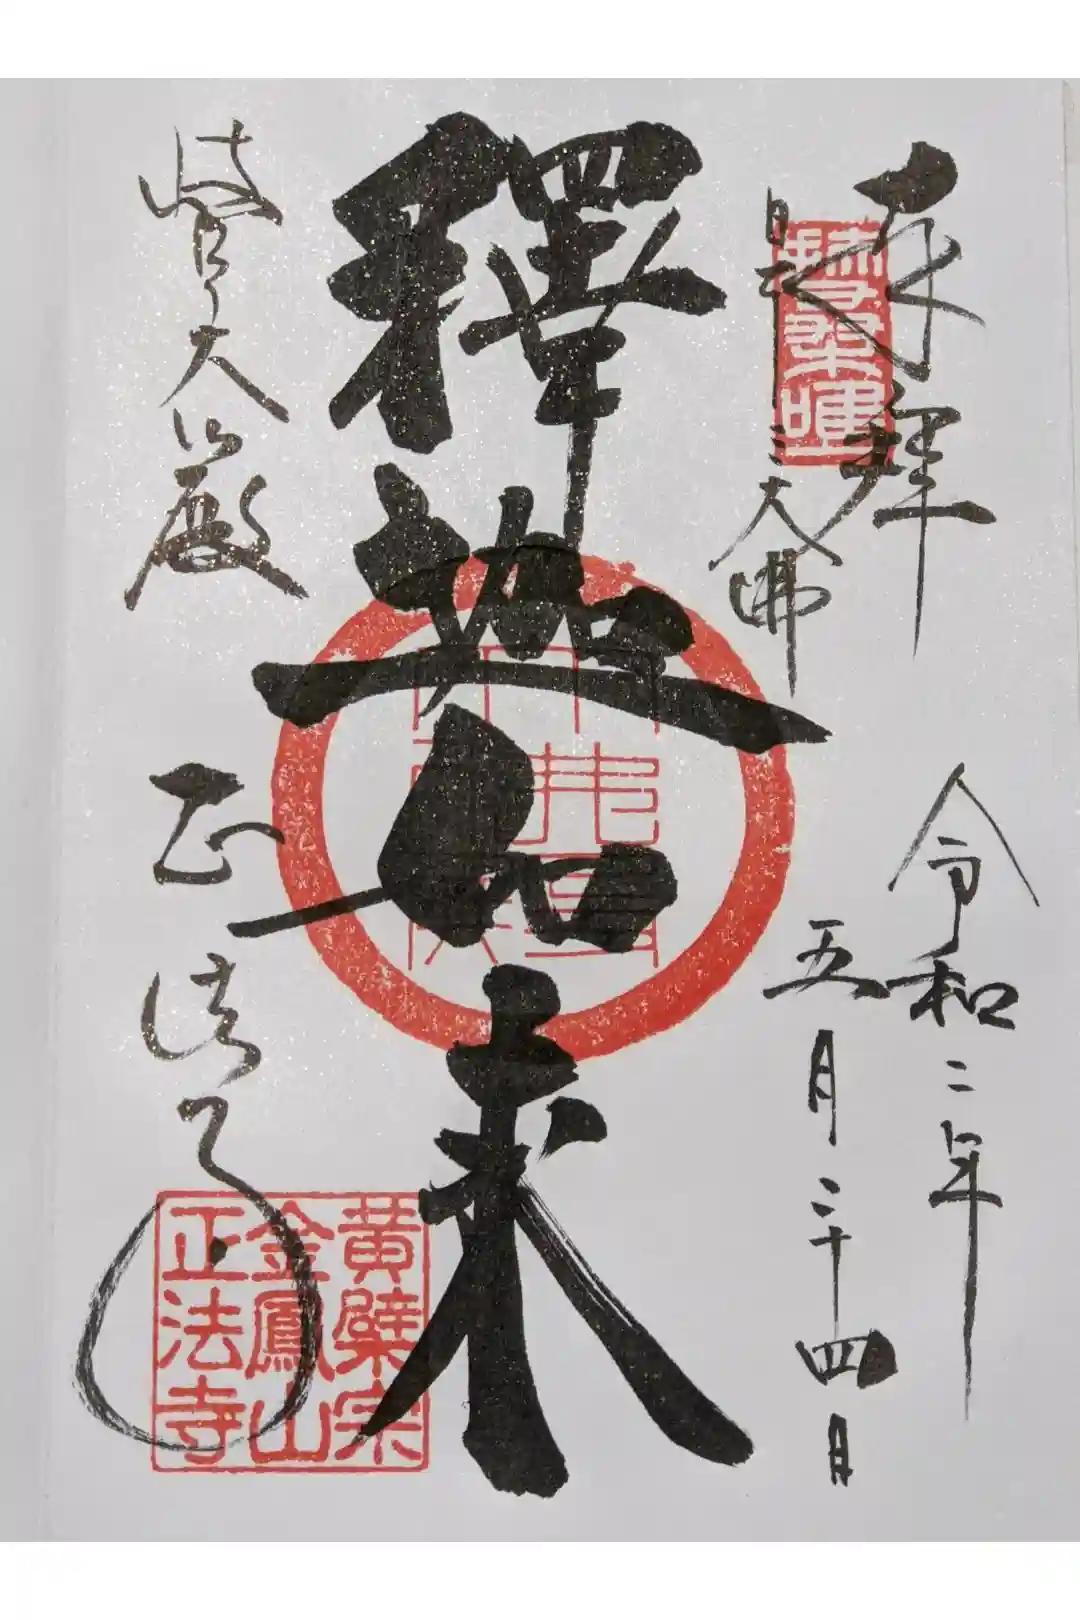 奉拜
日本三大佛
令和二年
五月二十四日
釋迦如来
大殿
正法寺
黄檗宗
金鳳山
正法寺